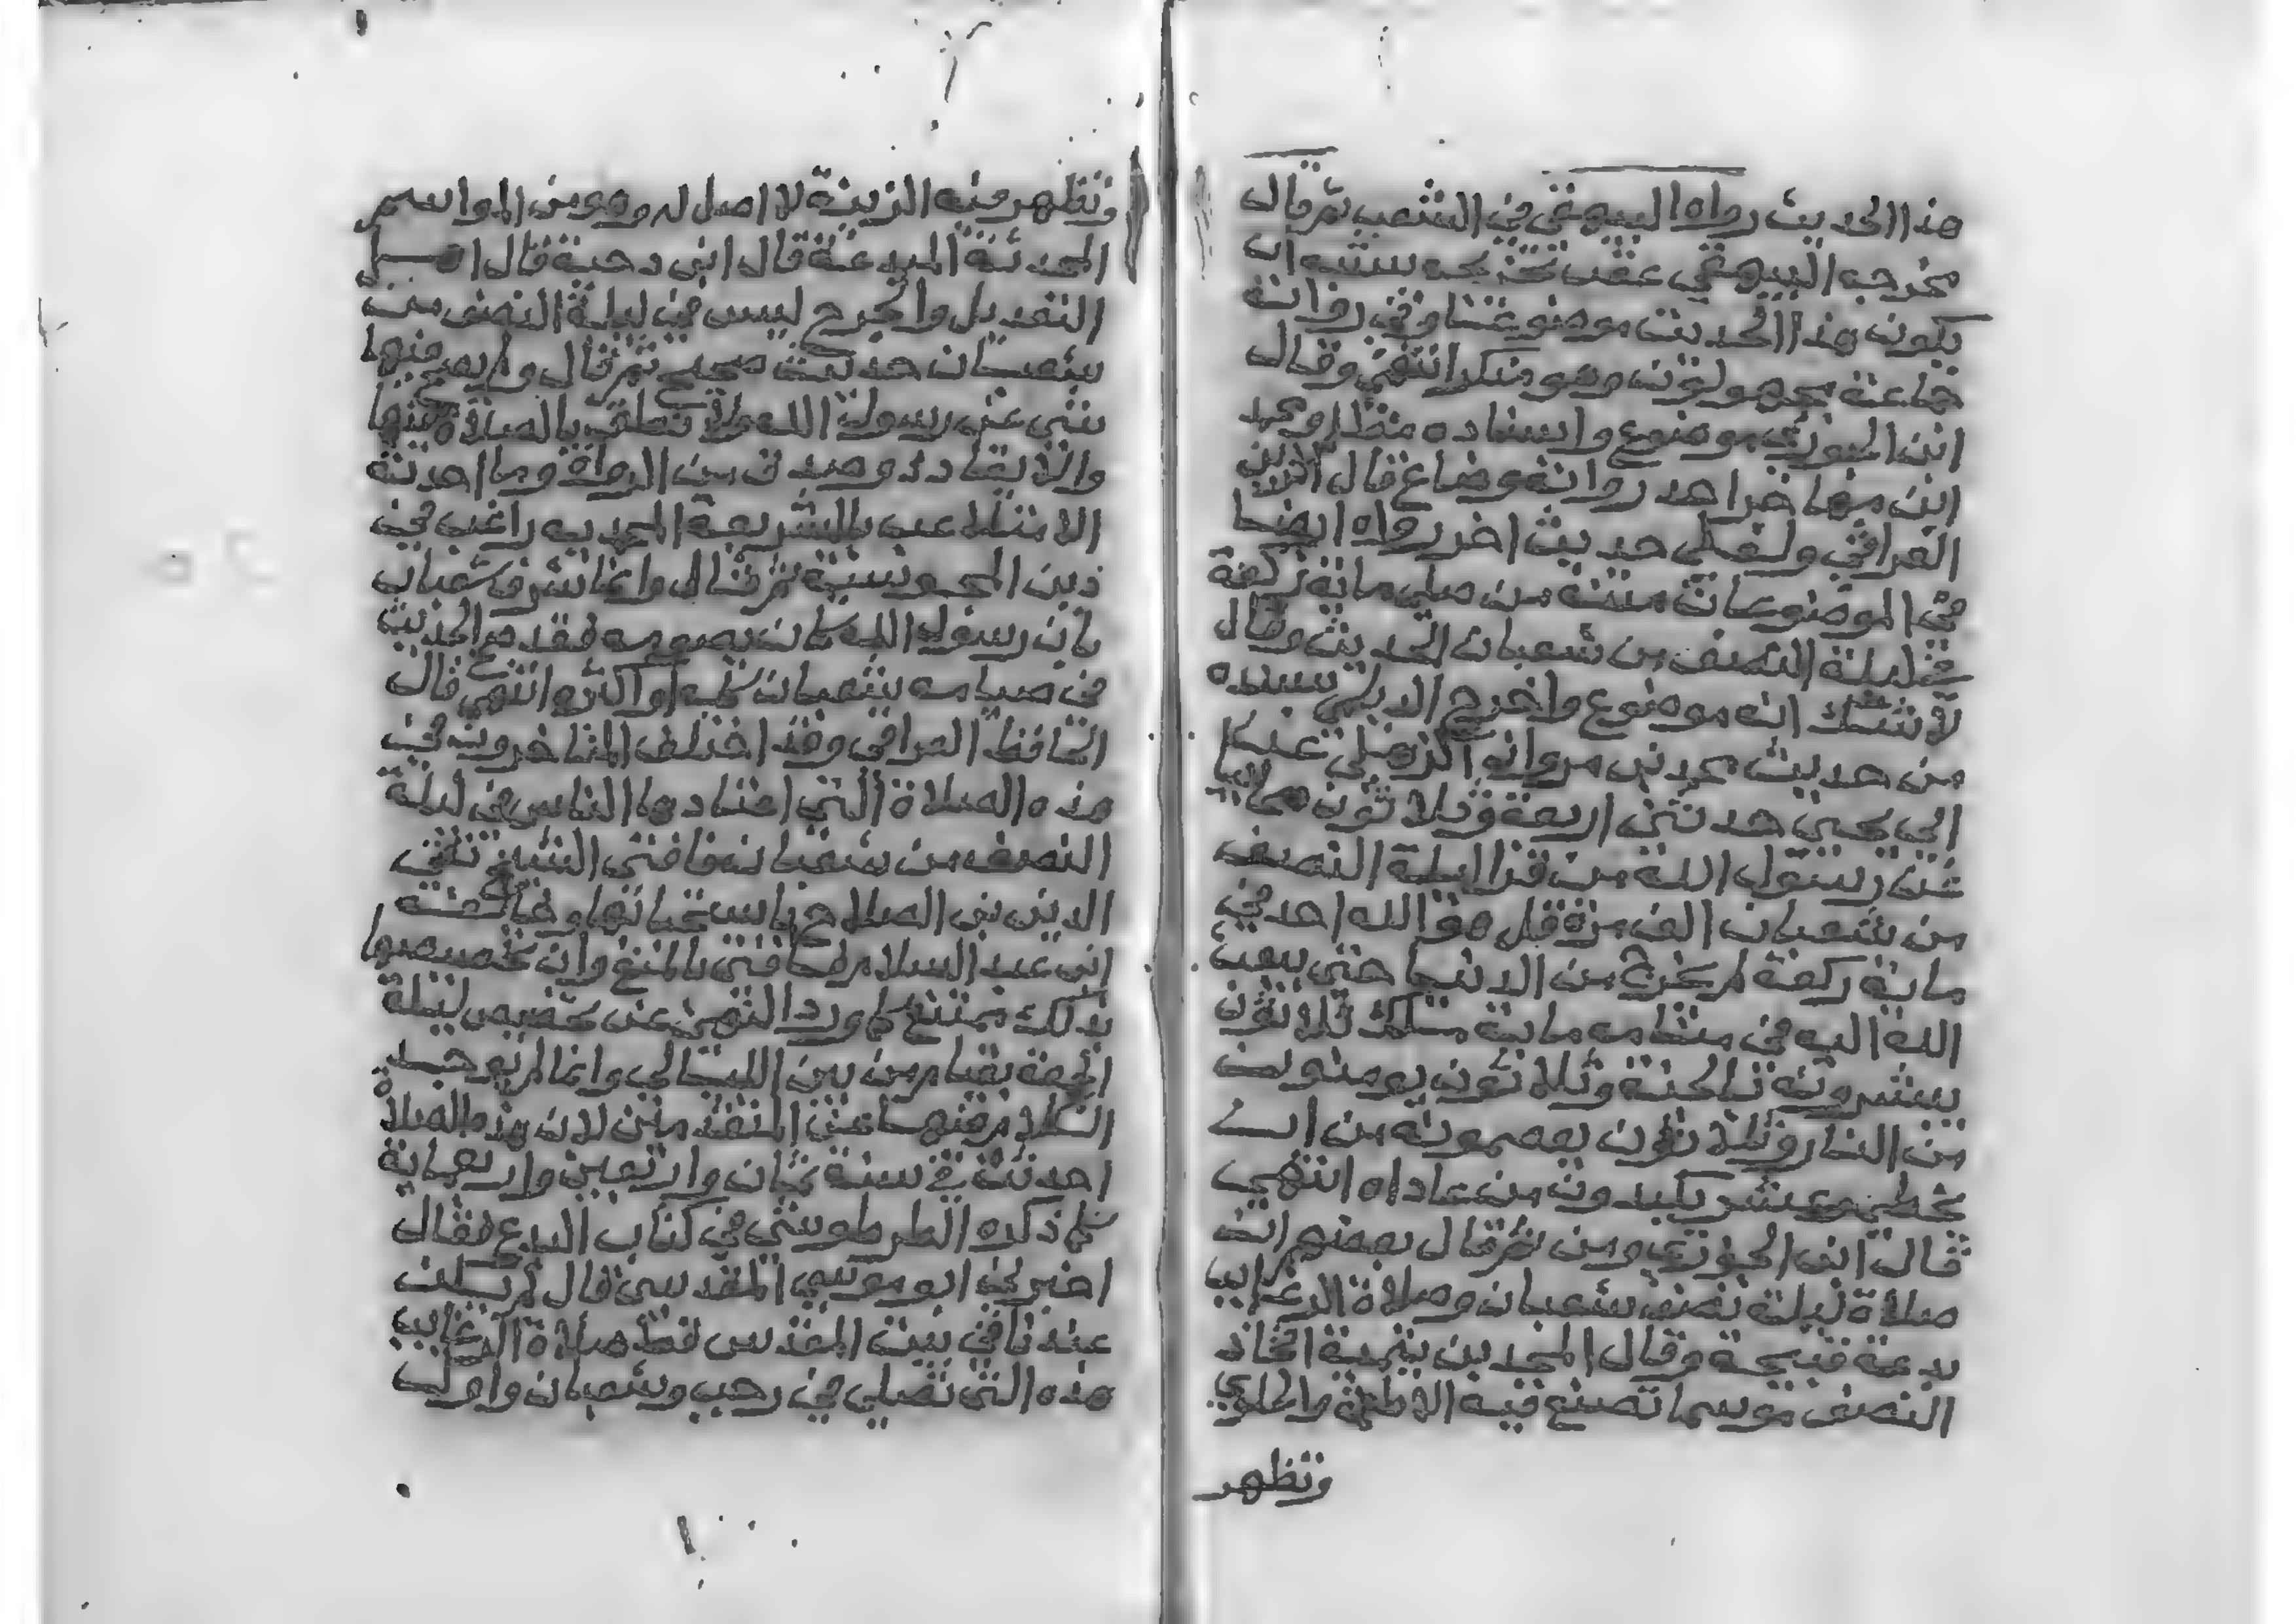 هذا الحديث رواه البيهقي في الشعب ثم قال
مخرجه البيهقي عقب تخريجه يشبه ان
يكون هذا الحديث موضوعا وفي رواته
جماعة مجهولون وهو منكر انتهى وقال
ابن الجوزي موضوع واسناده مظلم ومحمد
ابن مهاجر احد رواته وضاع قال الزين
العراقي ولعلي حديث اخر رواه ايضا
في الموضوعات متنه من صلى ماية ركعة
في ليلة النصف من شعبان الحديث وقال
لا شك انه موضوع واخرج الديلمي بسنده
من حديث محمد بن مروان الذهلي عن
الي يحيى حدثني اربعة وثلاثون
عن رسول الله من قرا ليلة النصف
من شعبان الف مرة قل هو الله احد في
ماية ركعة لم يخرج من الدنيا حتى يبعث
الله اليه في منامه ماية ملك ثلاثون
يبشرونه بالجنة وثلاثون يومنونه
من النار وثلاثون يعصمونه من ان
يخطي وعشر يكيدون من عاداه انتهى
قال ابن الجوزي ومن ثم قال بعضهم ان
صلاة ليلة نصف شعبان وصلاة الرغايب
بدعة قبيحة وقال المجد بن تيمية اتخاذ
النصف موسما تصنع فيه الاطعمة والحلوى
وتظهر
وتظهر فيه الزينة لا اصل له وهو من المواسم
المحدثة المبدعة قال ابن دحية قال اهل
التعديل والجرح ليس في ليلة النصف من
شعبان حديث صحيح ثم قال ولم يصح فيها
شي عن رسول الله ولا نطق بالصلاة فيها
والايقاد ذو صدق من الرواة وما احدثه
الا متلاعب بالشريعة المحمدية راغب في
دين المجوسية ثم قال وانما شرف شعبان
بان رسول الله كان يصومه فقد صح الحديث
في صيامه شعبان كله او اكثره انتهى قال
الحافظ العراقي وقد اختلف المتاخرون في
هذه الصلاة التي اعتادها الناس في ليلة
النصف من شعبان فافتى الشيخ تقي
الدين بن الصلاح باستحبابها وخالفه
ابن عبد السلام فافتى بالمنع وان تخصيصها
بذلك ممتنع كما ورد النهي عن تخصيص ليلة
الجمعة بقيام من بين الليالي وانما لم يوجد
الكلام فيها عن المتقدمين لان هذه الصلاة
احدثت في سنة ثمان واربعين واربعماية
كما ذكره الطرطوشي في كتاب البدع فقال
اخبرني ابو موسى المقدسي قال لم يكن
عندنا في بيت المقدس قط صلاة الرغايب
هذه التي تصلى في رجب وشعبان واول